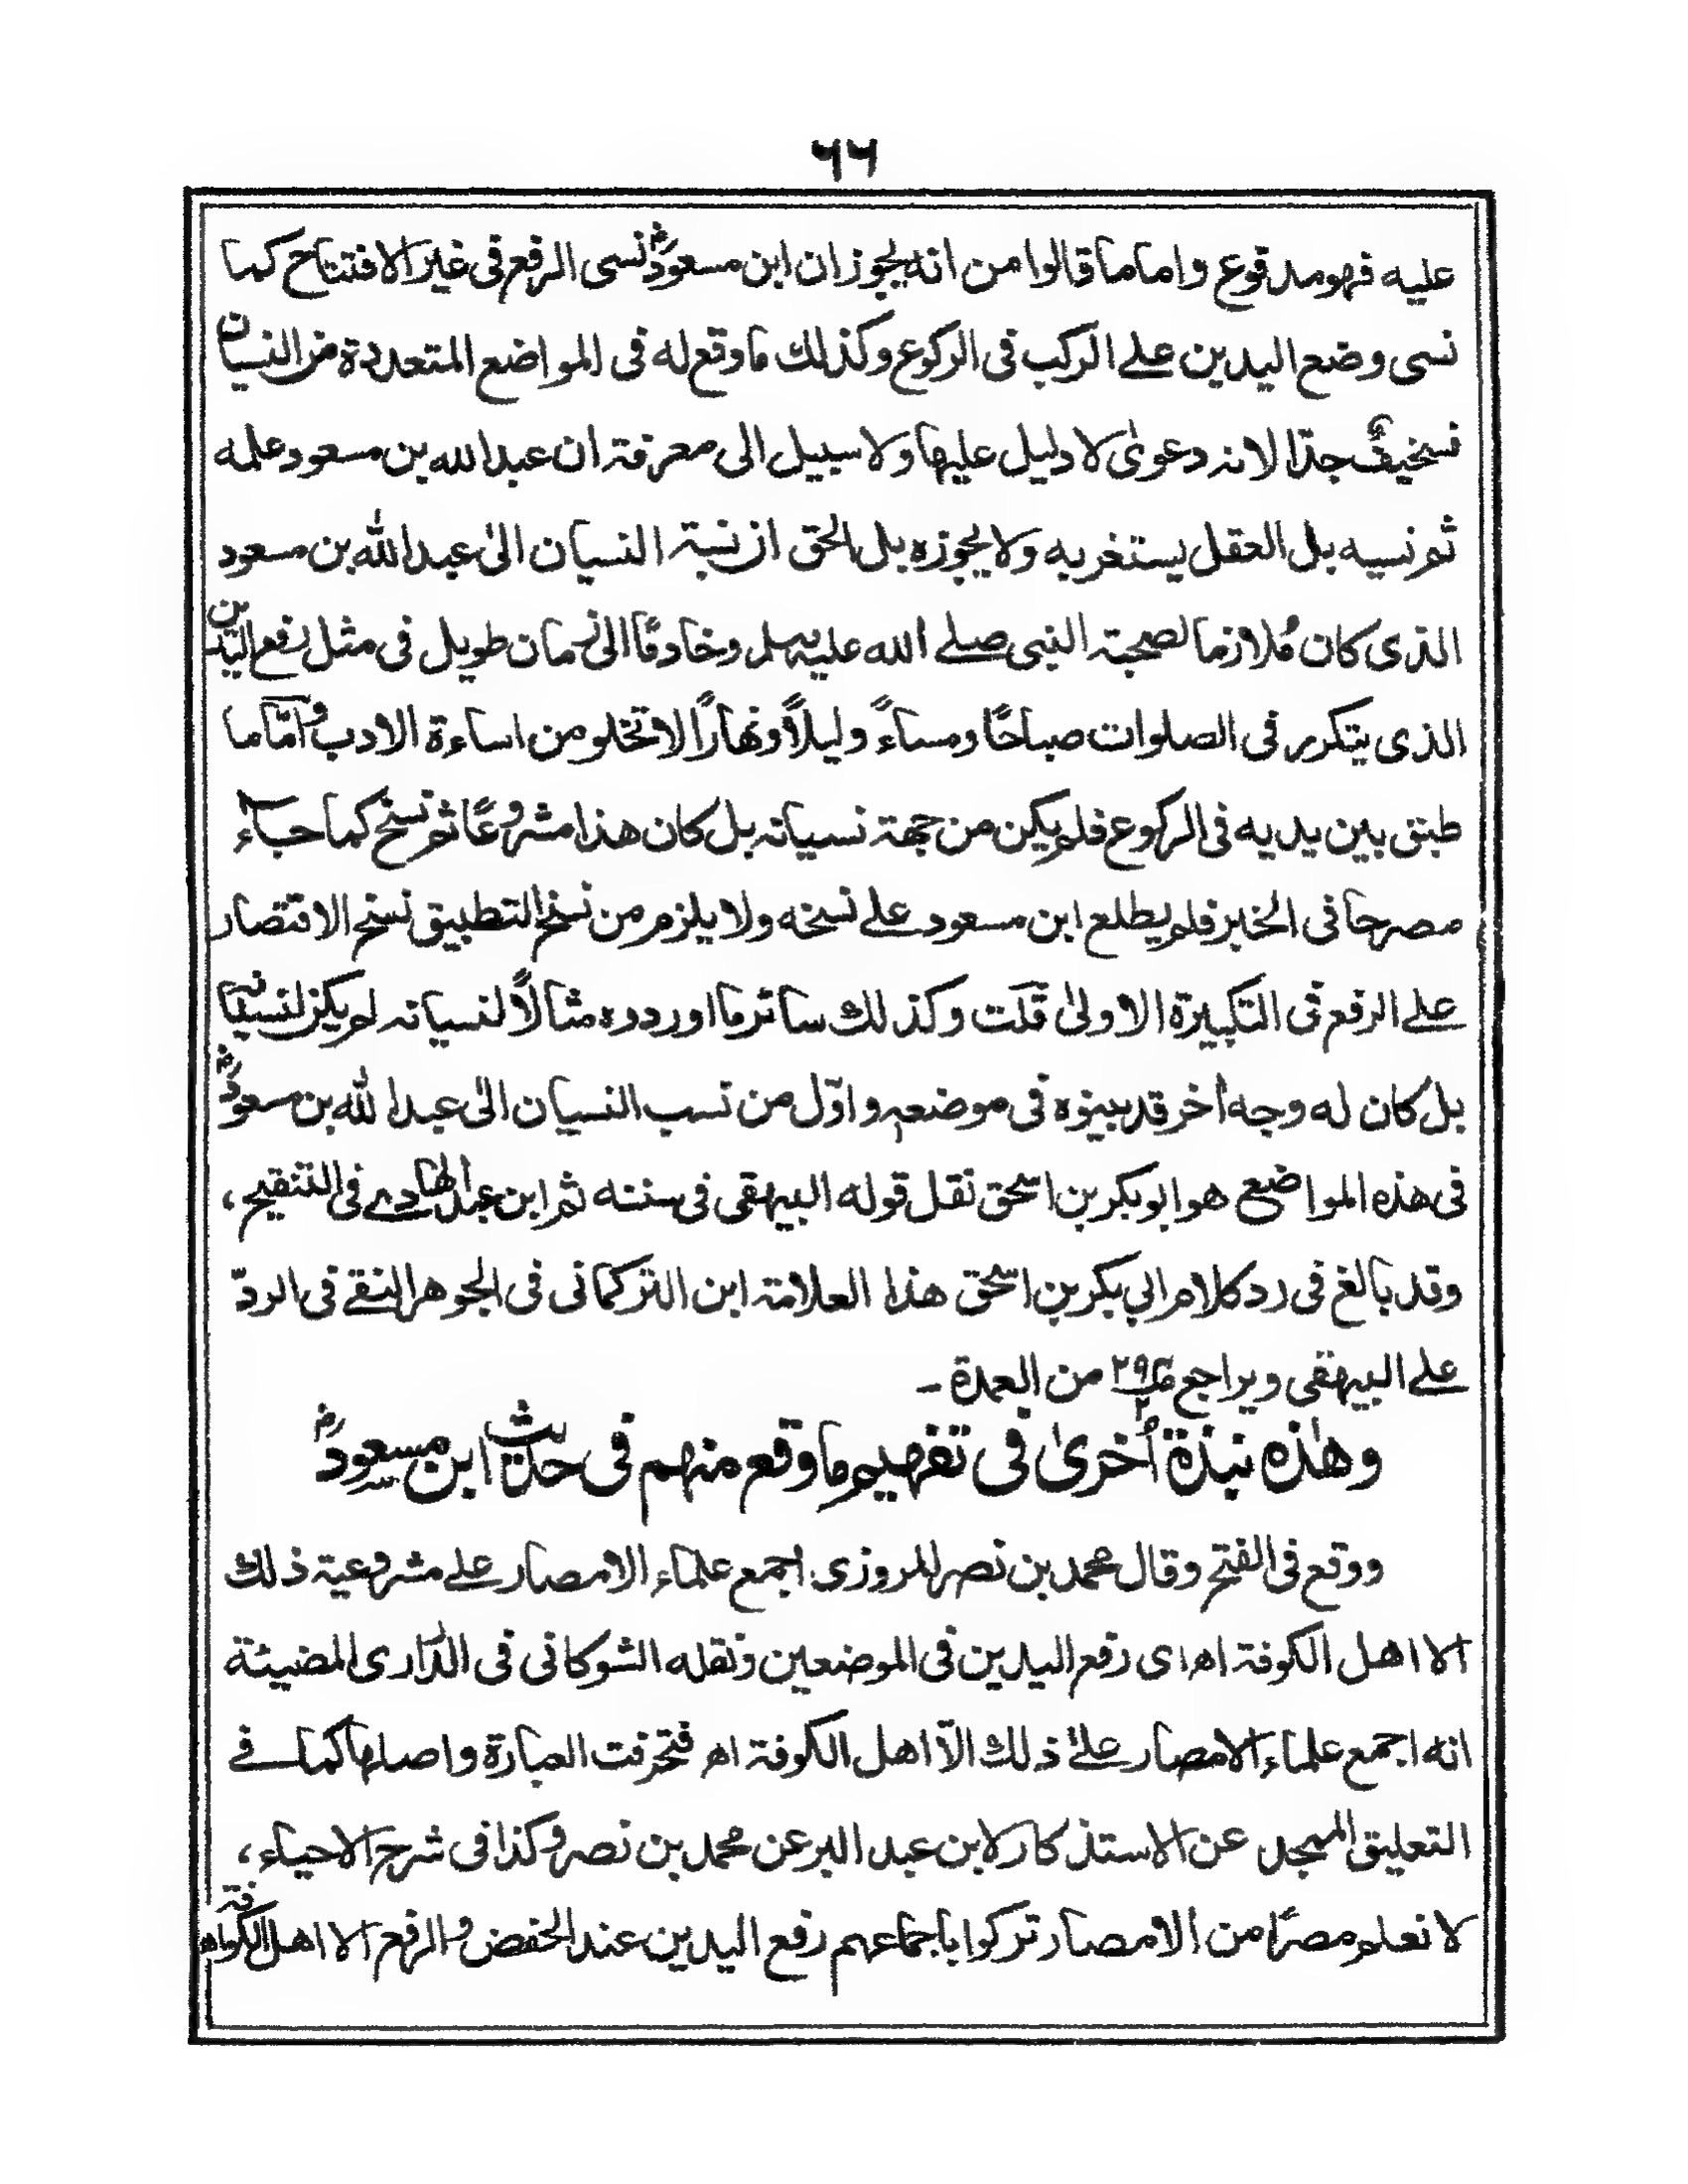 ٦٦
عليه فهو مدفوع واما ما قالوا من انه يجوز ان ابن مسعودؓ نسى الرفع فى غير الافتتاح كما
نسى وضع اليدين علے الركب فى الركوع وكذلك ما وقع له فى المواضع المتعددة من النسيان
فسخيفٌ جدّا لانه دعوىٰ لا دليل عليها ولا سبيل الى معرفته ان عبدالله بن مسعود علمه
ثم نسيه بل العقل يستغربه ولا يجوزه بل الحق ان نسبة النسيان الىٰ عبدالله بن مسعود
الذى كان مُلازما لصحبته النبى صلے الله عليه وسلم وخادمًا الىٰ زمان طويل فى مثل رفع اليدين
الذى يتكرر فى الصلوات صباحًا ومساءً وليلًا ونهارًا لا تخلو من اساءة الادب وامّا ما
طبق بين يديه فى الركوع فلم يكن من جهة نسيانه بل كان هذا مشروعًا ثم نسخ كما جاء
مصرحا فى الخبر فلم يطلع ابن مسعود علے نسخه ولا يلزم من نسخ التطبيق نسخ الاقتصار
علے الرفع فى التكبيرة الاولىٰ قلت وكذلك سائر ما اوردوه مثالًا لنسيانه لم يكن لنسيانه
بل كان له وجه أخر قد بينوه فى موضعه واوّل من نسب النسيان الىٰ عبدالله بن مسعودؓ
فى هذه المواضع هو ابوبكر بن اسحق نقل قوله البيهقى فى سننه ثم ابن عبدالهادے فى التنقيح،
وقد بالغ فى رد كلام ابي بكر بن اسحق هذا العلامة ابن التركمانى فى الجوهر النقے فى الردّ
علے البيهقى ويراجع من العمدة ــ
وهٰذه نبذة اُخرىٰ فى تفهيم ما وقع منهم فى حديث ابن مسعودؓ
ووقع فى الفتح وقال محمد بن نصر المروزى اجمع علماء الامصار علے مشروعية ذلك
الا اهل الكوفة اھ اى رفع اليدين فى الموضعين ونقله الشوكانى فى الدّرارى المضيئة
انه اجمع علماء الامصار علےٰ ذلك الّا اهل الكوفة اھ فتحرفت العبارة واصلها كما فے
التعليق الممجد عن الاستذكار لابن عبدالبر عن محمد بن نصر وكذا فى شرح الاحياء،
لا نعلم مصرًا من الامصار تركوا باجماعهم رفع اليدين عند الخفض والرفع الا اهل الكوفة اھ